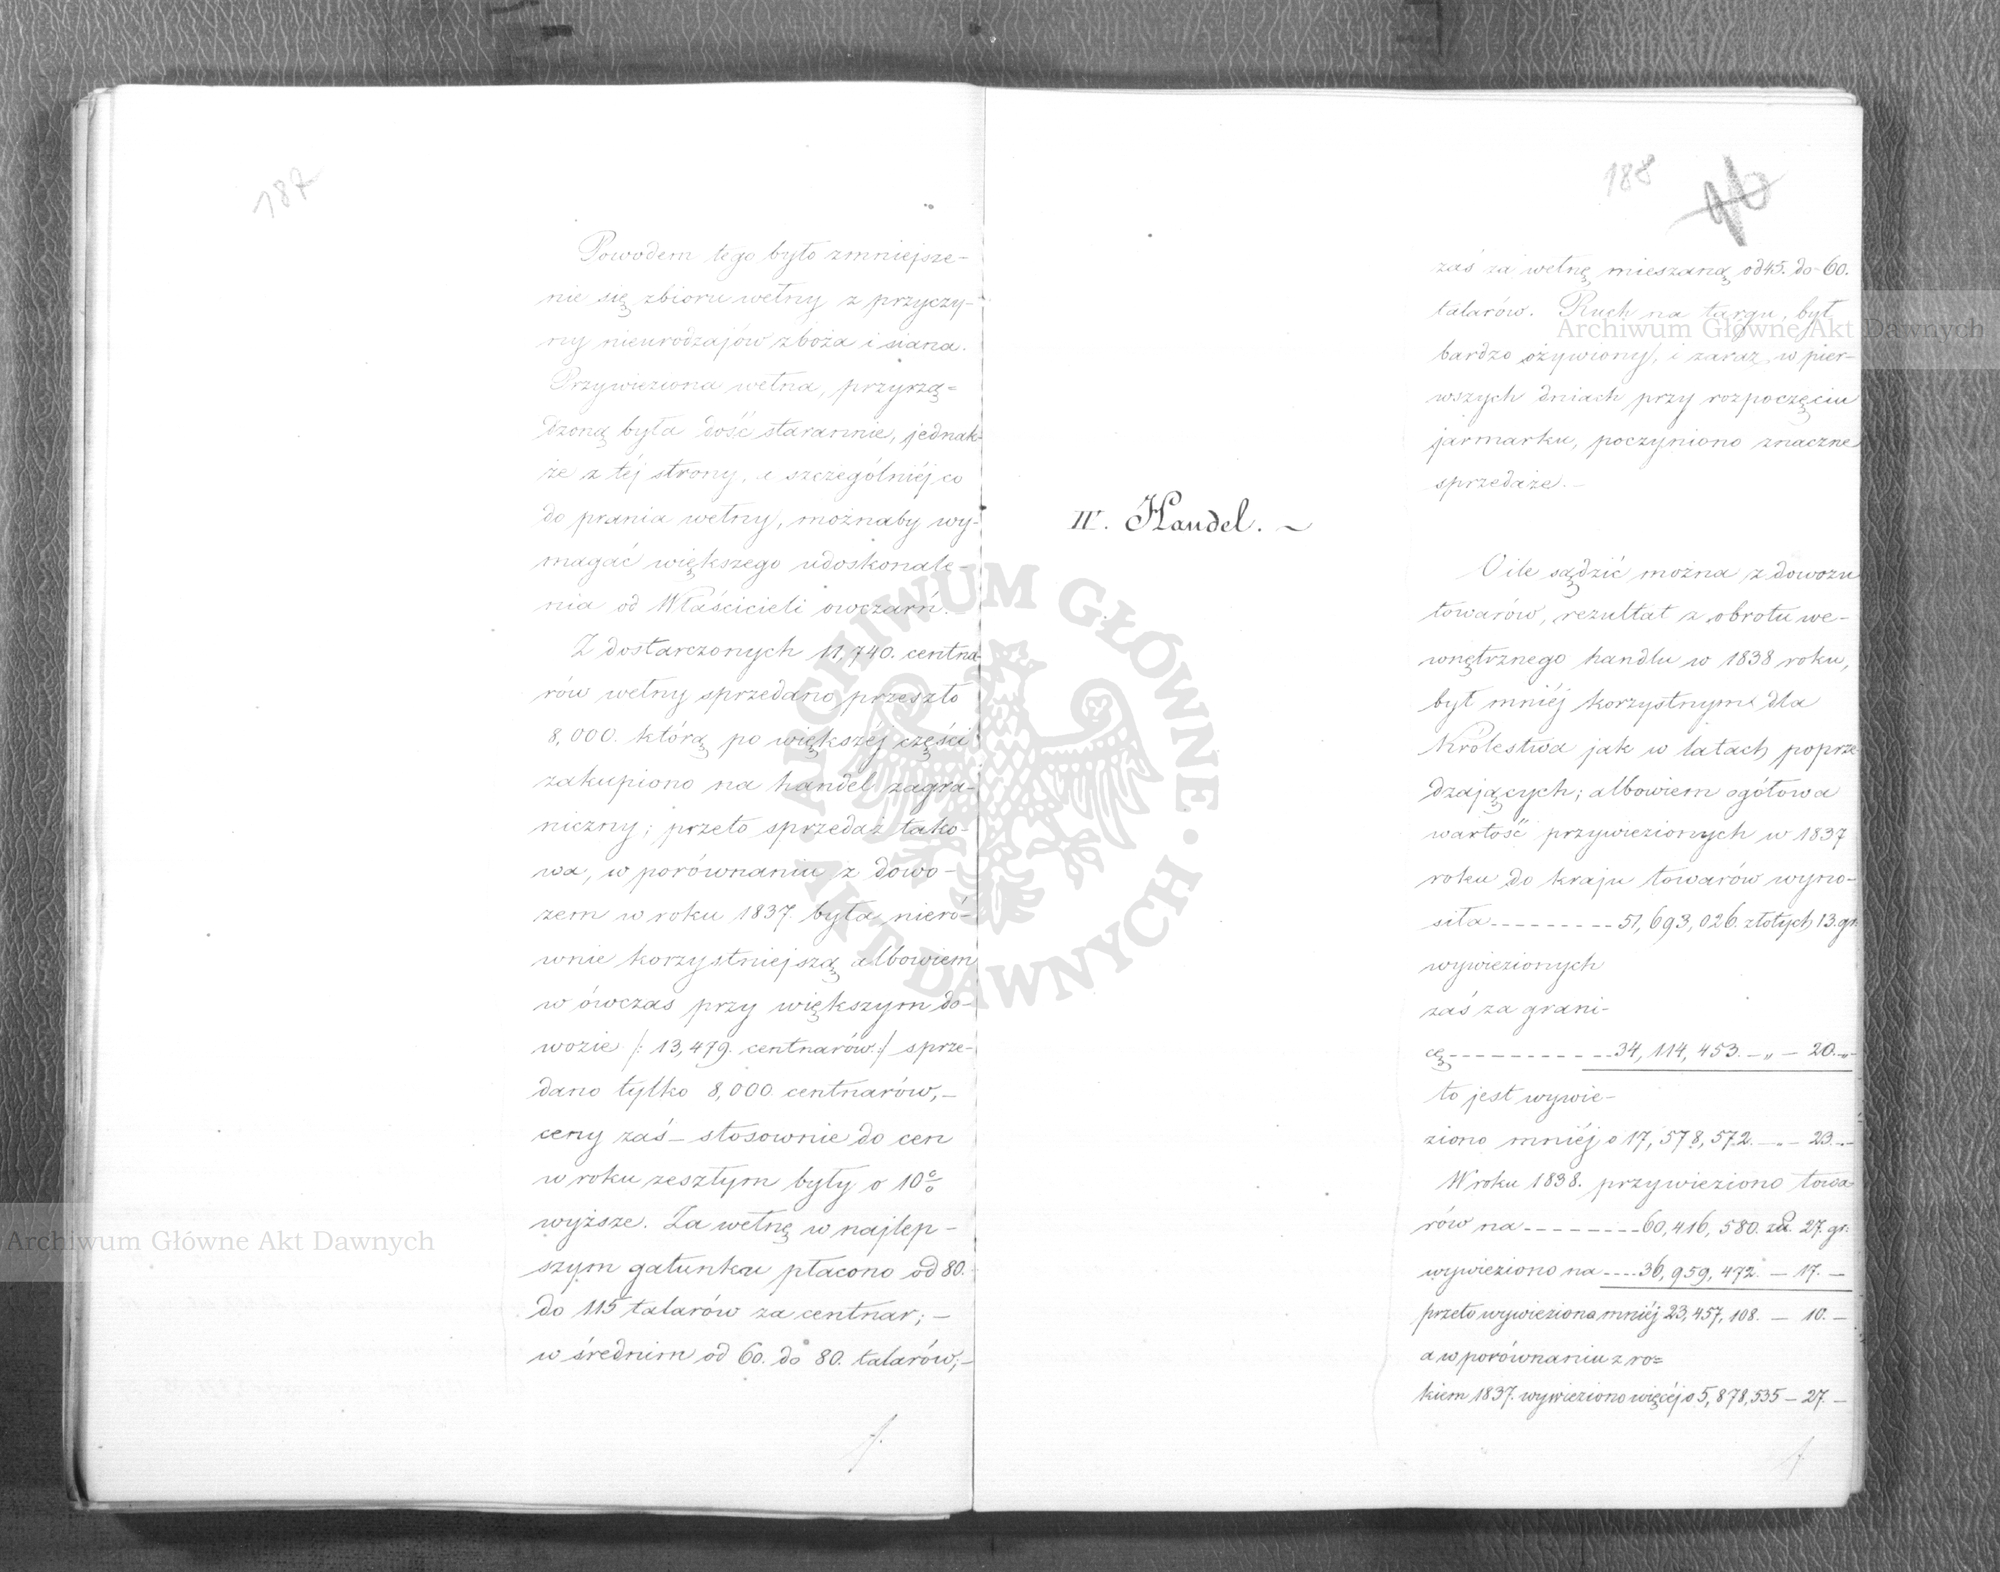 187
Powodem tego było zmniejsze-
nie się zbioru wełny z przyczy-
ny nieurodzajów zboża i siana.
Przywieziona wełna, przyrzą=
dzoną była dość starannie, jednak-
że z téj strony, a szczególniéj co
do prania wełny, możnaby wy-
magać większego udoskonale-
nia od Właścicieli owczarń.
Z dostarczonych 11,740. centna-
rów wełny sprzedano przeszło
8,000. którą po większéj części
zakupiono na handel zagra-
niczny; przeto sprzedaż tako-
wa, w porównaniu z dowo-
zem w roku 1837. była nieró-
wnie korzystniejszą albowiem
w ówczas przy większym do-
wozie /: 13,479. centnarów :/ sprze-
dano tylko 8,000. centnarów,-
ceny zaś - stosownie do cen
w roku zeszłym były o 10 %
wyższe. Za wełnę w najlep-
szym gatunku płacono od 80.
do 115 talarów za centnar; -
w średnim od 60. do 80. talarów; -
188
zaś za wełnę mieszaną od 45. do 60.
talarów. Ruch na targu, był
bardzo ożywiony, i zaraz w pier-
wszych dniach przy rozpoczęciu
jarmarku, poczyniono znaczne
sprzedaże. -
IV. Handel. ~
O ile sądzić można z dowozu
towarów, rezultat z obrotu we-
wnętrznego handlu w 1838 roku,
był mniéj korzystnym dla
Królestwa jak w latach poprze-
dzających; albowiem ogółowa
wartość przywiezionych w 1837
roku do kraju towarów wyno-
siła --------- 51,693,026. złotych 13. gr.
wywiezionych
zaś za grani-
cę ------------ 34,114,453. - „ - 20. „ -
to jest wywie-
ziono mniéj o 17,578,572. - „ - 23. -
W roku 1838. przywieziono towa
rów na -------- 60,416,580. zł. 27. gr:
wywieziono na ---- 36,959,472. - 17. -
przeto wywieziono mniéj 23,457,108. - 10. -
a w porównaniu z ro=
kiem 1837. wywieziono więcéj o 5,878,535 - 27. -
Archiwum Główne Akt Dawnych
Archiwum Główne Akt Dawnych
ARCHIWUM GŁÓWNE · AKT DAWNYCH ·